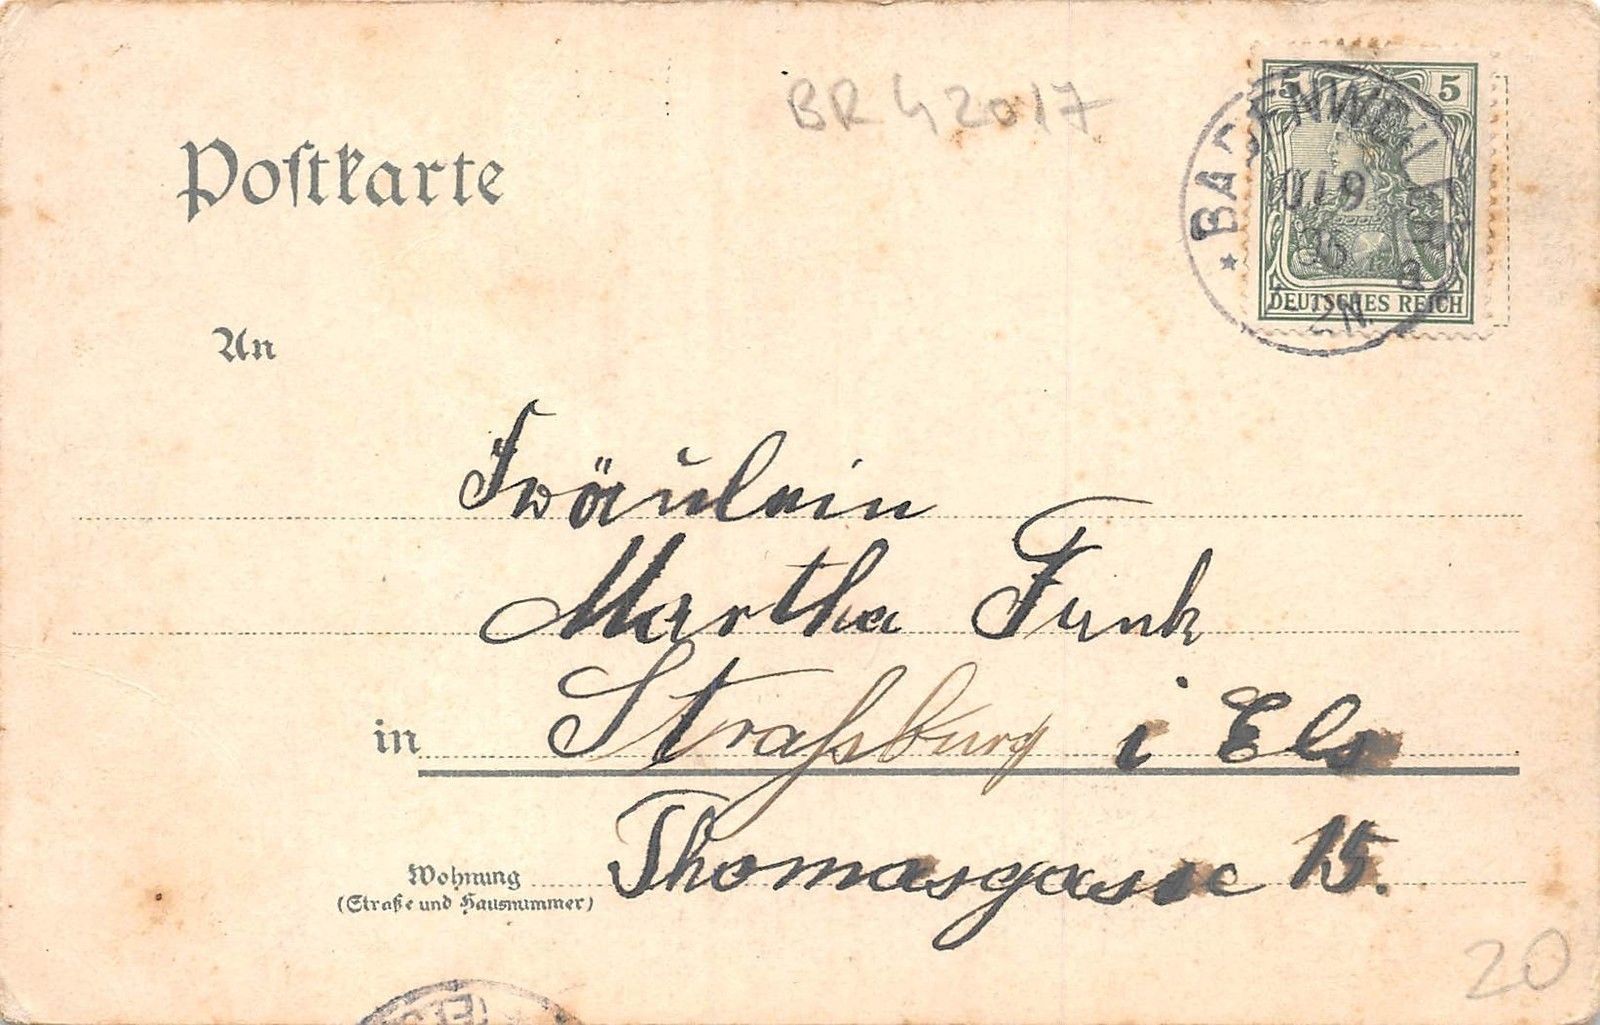 BR 42017
Postkarte
5 5
BADENWEILER
DEUTSCHES REICH
An
Fräulein
Martha Funk
in Straßburg i Els
Wohnung
(Straße und Hausnummer)
Thomasgasse 15.
20